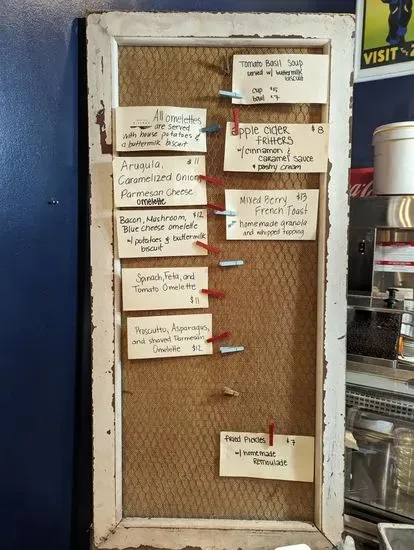 All omelettes
are served
with house potatoes &
a buttermilk biscuit
Arugula, $11
Caramelized Onion
Parmesan Cheese
omelette
Bacon, Mushroom, $12
Blue cheese omelette
w/ potatoes & buttermilk
biscuit
Spinach, Feta, and
Tomato Omelette
$11
Prosciutto, Asparagus,
and shaved Parmesan
Omelette $12
Tomato Basil Soup
served w/ buttermilk
biscuit
cup $5
bowl $7
Apple cider $8
fritters
w/ cinnamon &
caramel sauce
& pastry cream
Mixed Berry $13
French Toast
homemade granola
and whipped topping
Fried Pickles $7
w/ homemade
Remoulade
VISIT